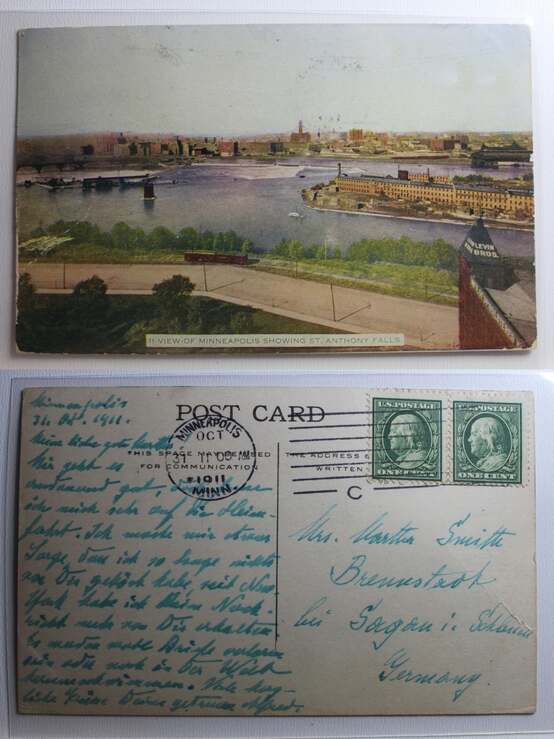 LEVIN
BROS.
11-VIEW OF MINNEAPOLIS SHOWING ST. ANTHONY FALLS
POST CARD
THIS SPACE MAY BE USED
FOR COMMUNICATION
THE ADDRESS
WRITTEN
MINNEAPOLIS
OCT
31
1911
MINN.
C
U.S. POSTAGE
ONE CENT
U.S. POSTAGE
ONE CENT
Minneapolis
31. Okt. 1911.
Meine liebe gute Martha
Mir geht es
andauernd gut,
ich mich sehr auf die Heim-
fahrt. Ich mache mir etwas
Sorge, dass ich so lange nichts
von Dir gehört habe, seit New
York habe ich keine Nach-
richt mehr von Dir erhalten
Es werden wohl Briefe verloren
sein oder noch in der Welt
herumschwimmen. Viele herz-
liche Grüsse Deines getreuen Alfred.
Mrs. Martha Smith
Brennstadt
bei Sagan i.
Germany.